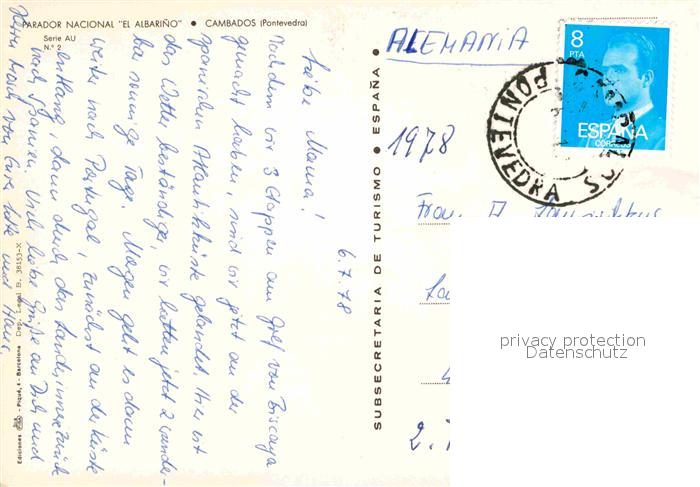 PARADOR NACIONAL "EL ALBARIÑO" • CAMBADOS (Pontevedra)
Serie AU
N.º 2
6.7.78
Liebe Mama!
Nachdem wir 3 Etappen am Golf von Biscaya
gemacht haben, sind wir jetzt an der
spanischen Atlantikküste gelandet. Hier ist
das Wetter beständiger, wir hatten jetzt 2 wunder-
bar sonnige Tage. Morgen geht es dann
weiter nach Portugal, zunächst an der Küste
entlang, dann durch das Landesinnere zurück
nach Spanien. Viele liebe Grüße an Dich und
von und Hans.
Ediciones - Barcelona Dep. Legal B. 38153-X
SUBSECRETARIA DE TURISMO • ESPAÑA
ALEMANIA
1978
8
PTA
ESPAÑA
CORREOS
PONTEVEDRA
Frau
privacy protection
Datenschutz